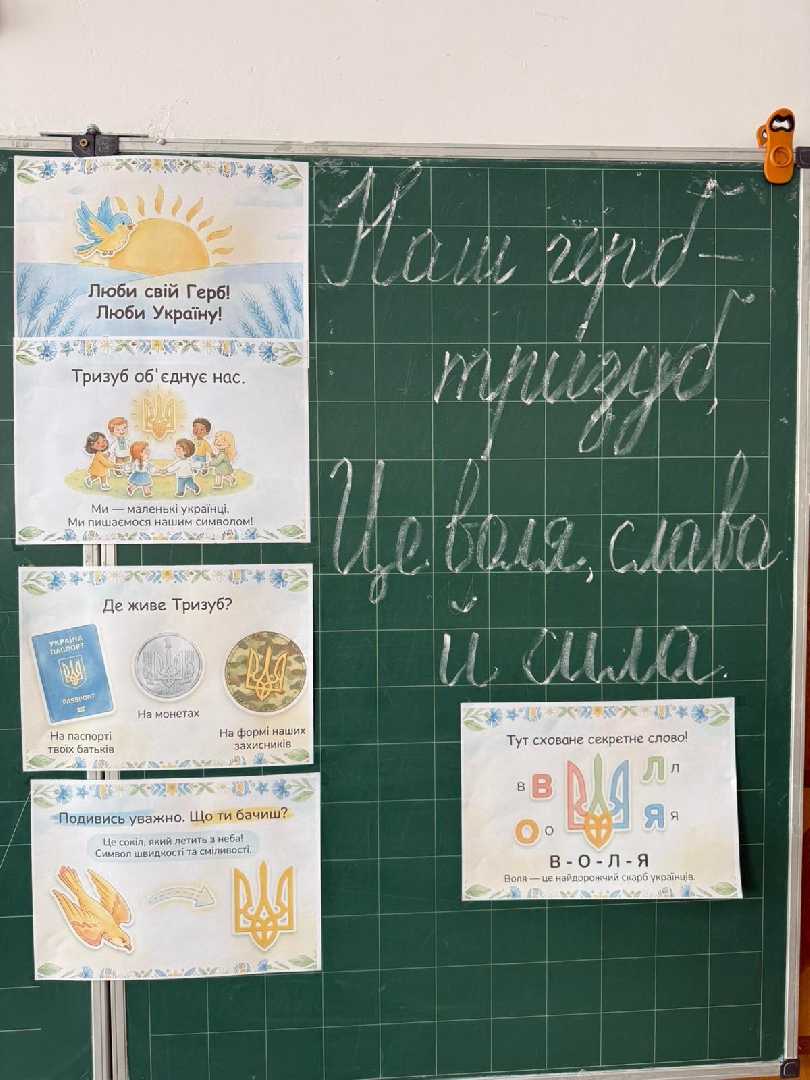 Люби свій Герб!
Люби Україну!
Тризуб об'єднує нас.
Ми — маленькі українці.
Ми пишаємося нашим символом!
Де живе Тризуб?
УКРАЇНА
ПАСПОРТ
PASSPORT
На паспорті
твоїх батьків
На монетах
На формі наших
захисників
Подивись уважно. Що ти бачиш?
Це сокіл, який летить з неба!
Символ швидкості та сміливості.
Наш герб –
тризуб,
Це воля, слава
й сила.
Тут сховане секретне слово!
в В Л л
О о Я я
В - О - Л - Я
Воля — це найдорожчий скарб українців.